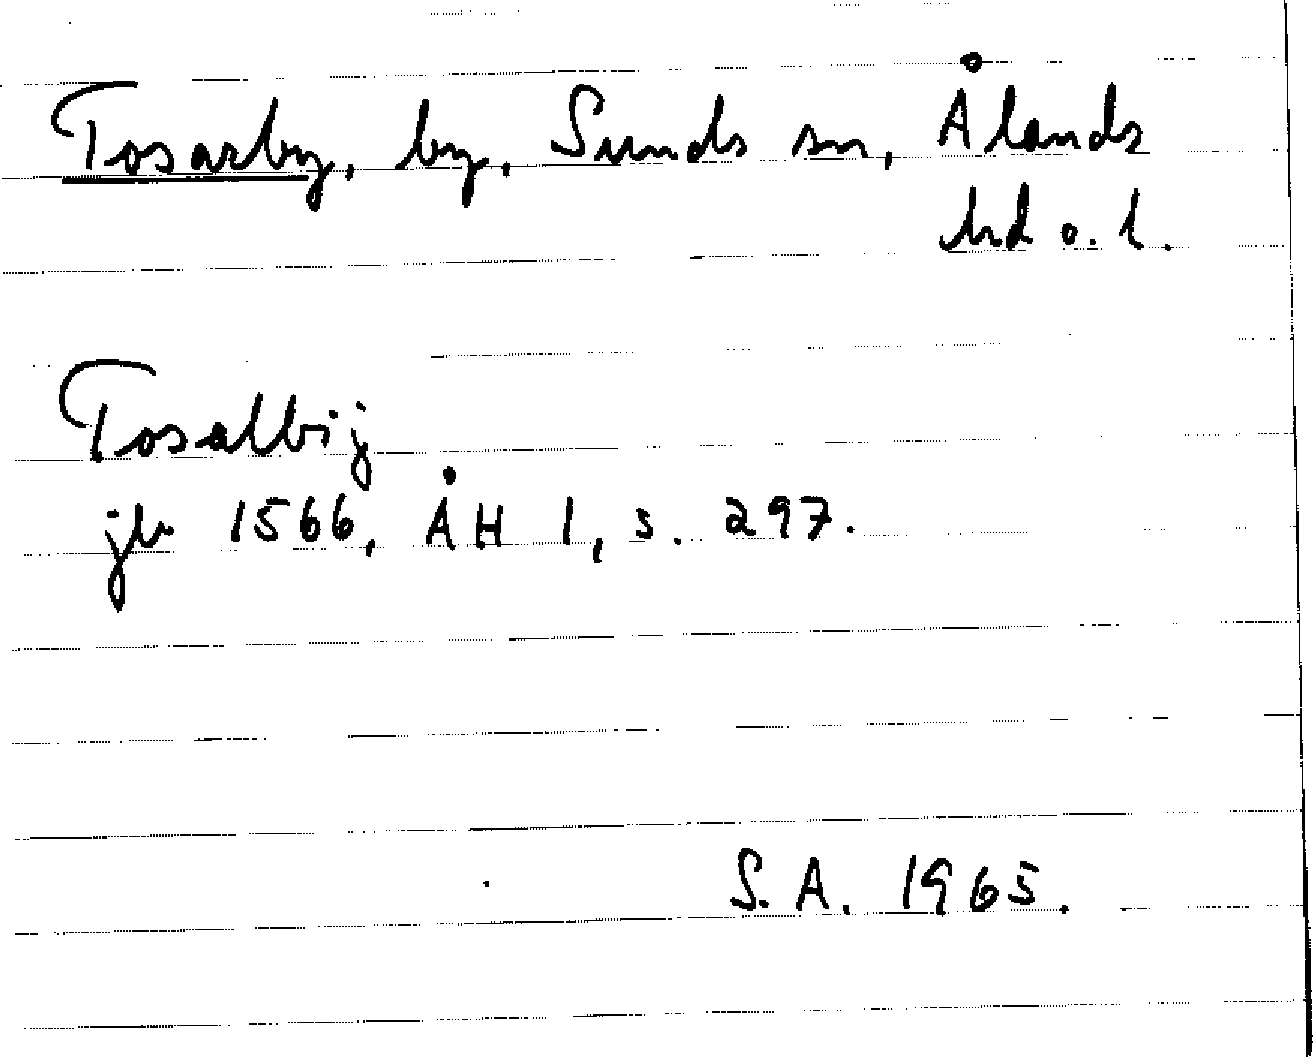 Tosarby, by, Sunds sn, Ålands
hd o. l.
Tosalbij
jb 1566, ÅH 1, s. 297.
S. A. 1965.